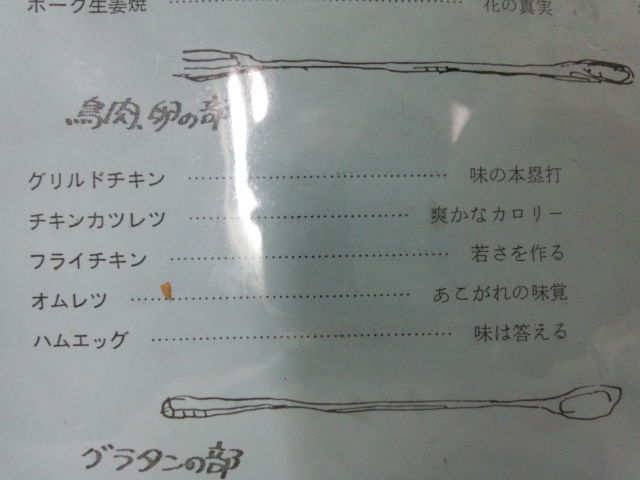 ポーク生姜焼 ………………… 花の真実
鳥肉、卵の部
グリルドチキン ………………… 味の本塁打
チキンカツレツ ………………… 爽かなカロリー
フライチキン ………………… 若さを作る
オムレツ ………………… あこがれの味覚
ハムエッグ ………………… 味は答える
グラタンの部